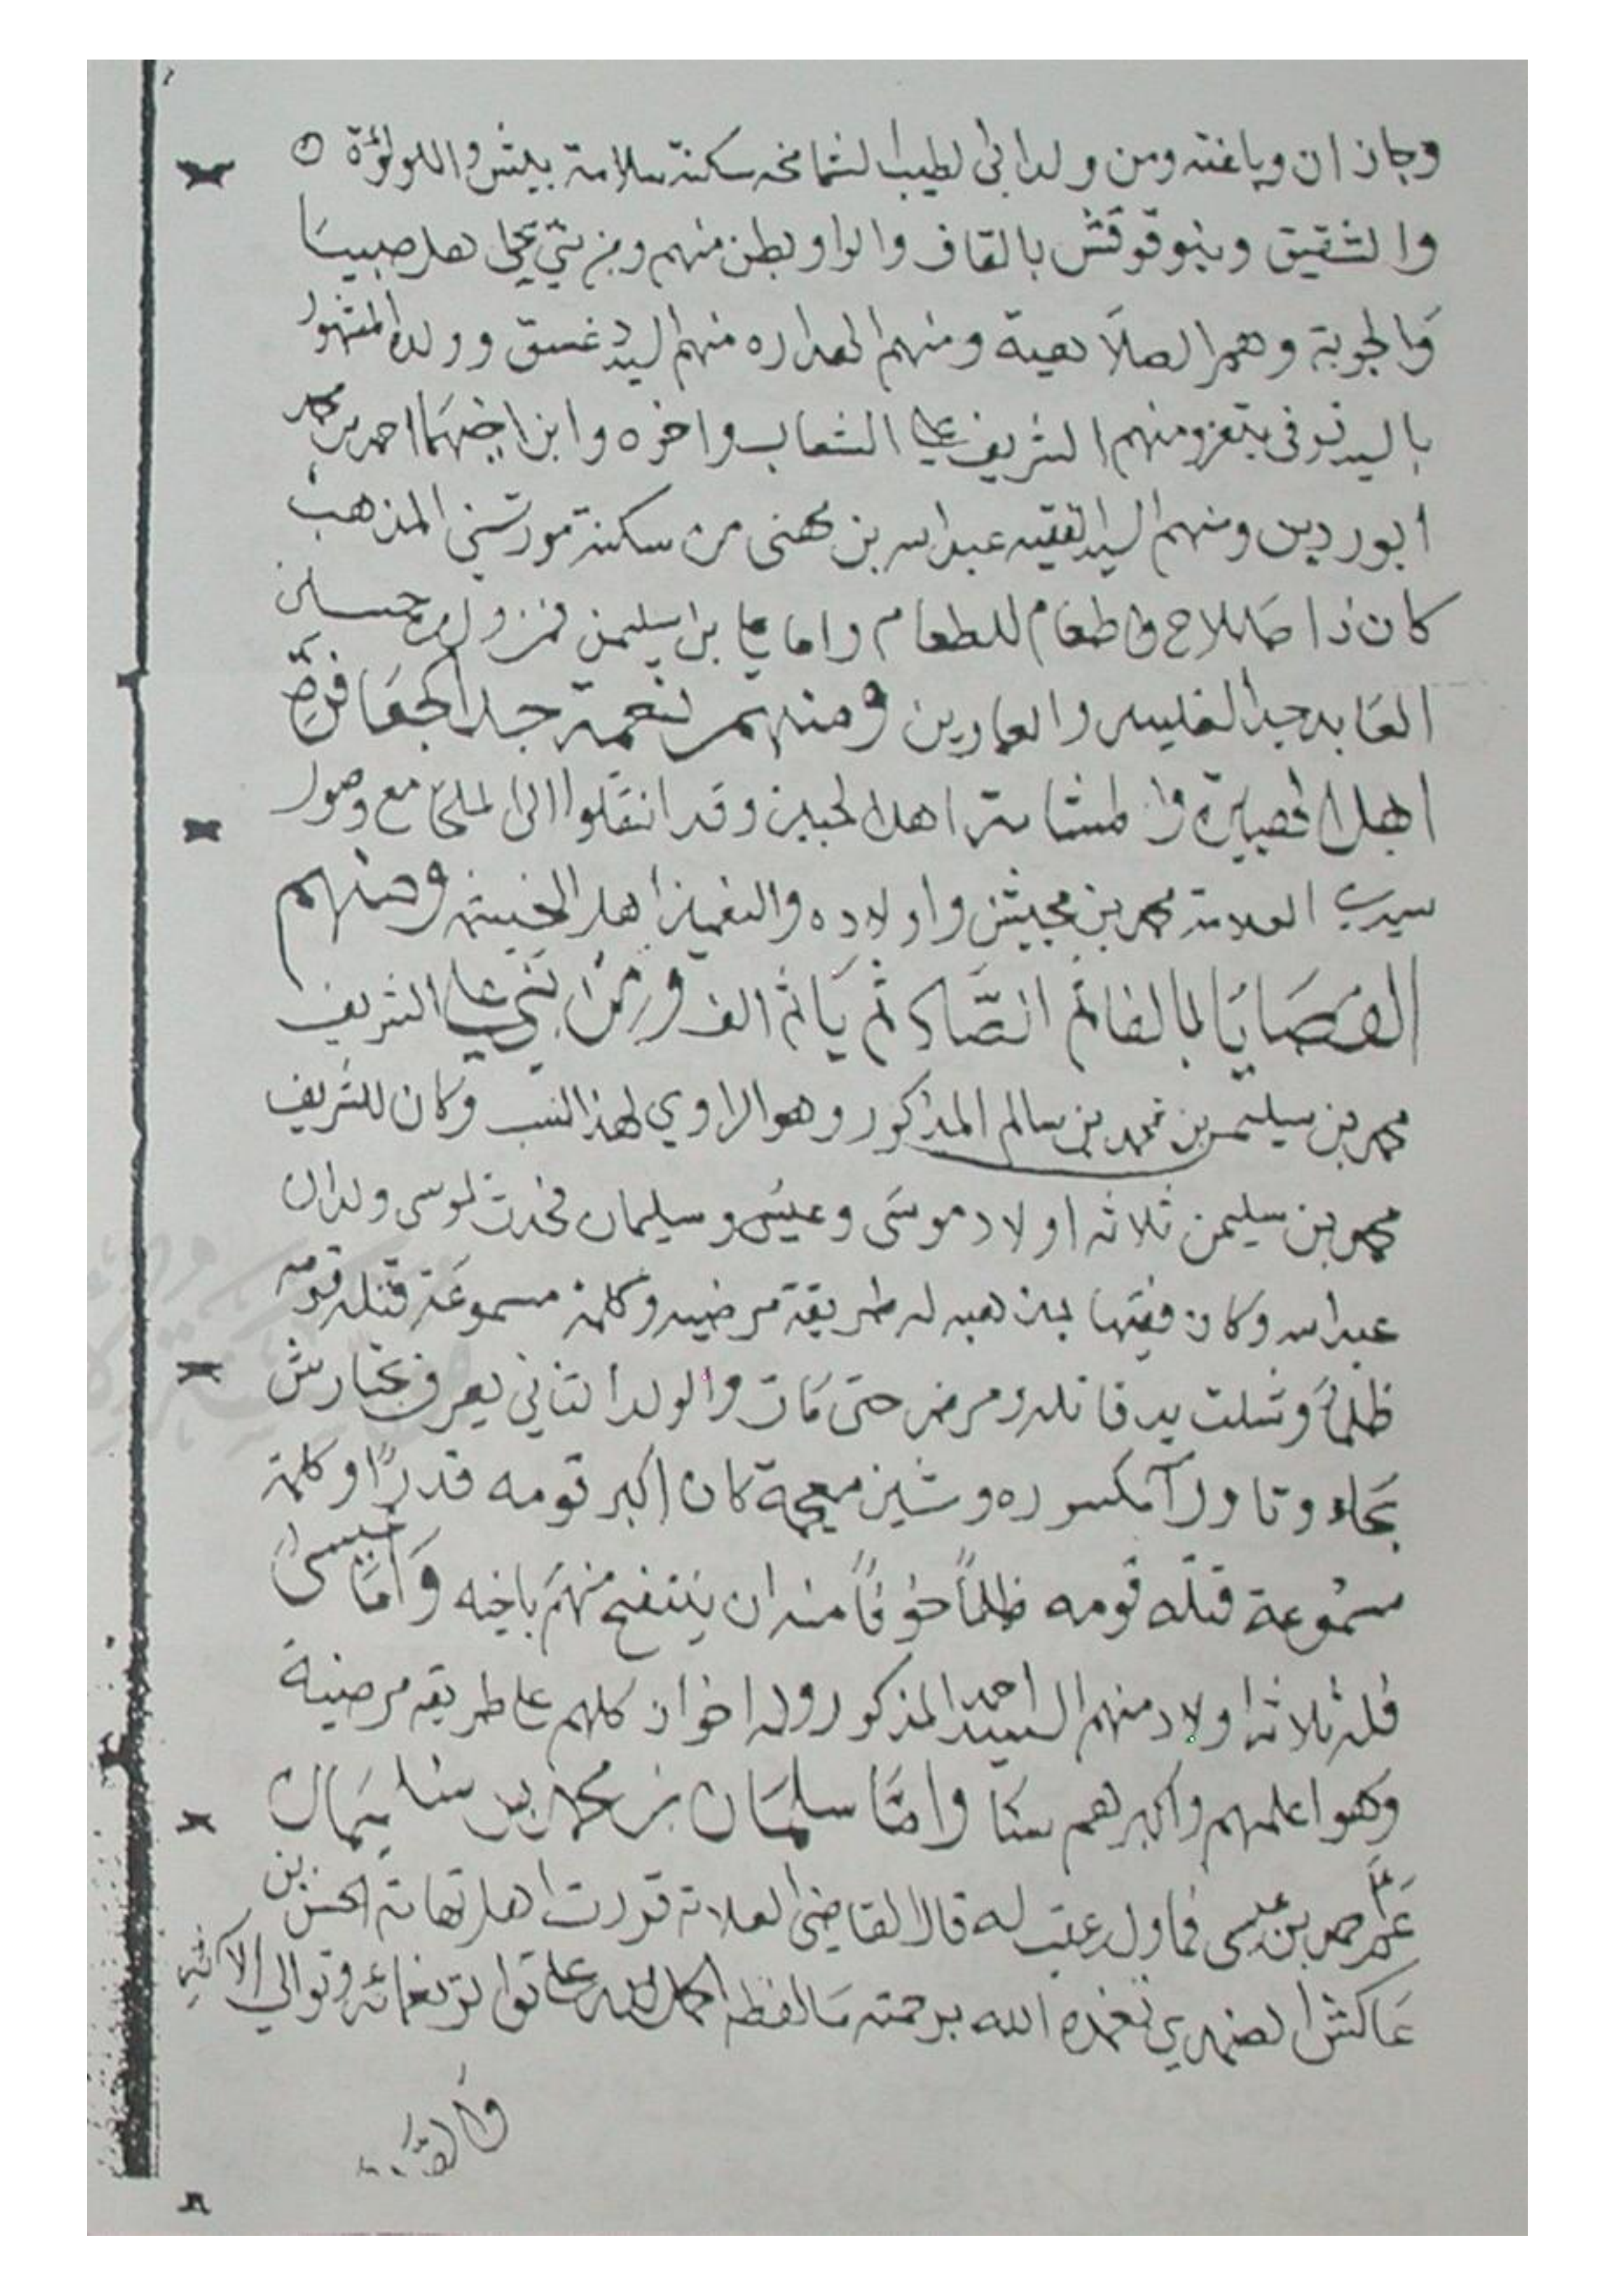 وجازان وباغته ومن ولد ابى لطيب الشماخه سكنة سلامة بيش واللولؤة ٥
والشقيق وبنو قوقش بالقاف والواو بطن منهم ومن بني يحي اهل صبيا
والجوبة وهم الصلاهبة ومنهم المداره منهم السيد غسق وولده المشهور
بالسيد في بتعز ومنهم الشريف علي الشعاب واخوه وابن اخيهما احمد بن محمد
ابوردين ومنهم السيد الفقيه عبدالله بن مهنى من سكنة مور سني المذهب
كان ذا صلاح واطعام للطعام واما علي بن سليمن فمن ولده حسين
العابد جد الفليسه والعمارين ومنهم نعمة جد الجعافرة
اهل الحصيرة والمشامة اهل الجبين وقد انتقلوا الى الملحا مع وصول
سيدي العلامة محمد بن مجيش واولاده والنعميين اهل الخبيتة ومنهم
القصايا بالفا ثم الصاد ثم يا ثم الف ومن بني علي الشريف
محمد بن سليمن بن محمد بن سالم المذكور وهو الراوي لهذا النسب وكان للشريف
محمد بن سليمن ثلاثه اولاد موسى وعيسى وسليمان فحدث لموسى ولدان
عبدالله وكان فقيها بمذهبه له طريقة مرضيه وكلمة مسموعة قتله قومه
ظلما وشلت يد قاتله ومرض حتى مات والولد الثاني يعرف بحتارش
بحاء وتا ورآ مكسوره وشين معجمة كان اكبر قومه قدرًا وكلمة
مسموعة قتله قومه ظلماً خوفاً منه ان ينتفح منهم باخيه واما عيسى
فله ثلاثه اولاد منهم السيد احمد المذكور وله اخوان كلهم على طريقه مرضية
وهو اعلمهم واكبرهم سنا واما سليمان بن محمد بن سليمان
بن محمد بن عيسى فما ول عقب له قال القاضي العلامة قدوت اهل تهامة الحسن بن
عاكش الضمدي تغمده الله برحمته مالفظه الحمد لله على تواتر نعمائه وتوالي الآئه